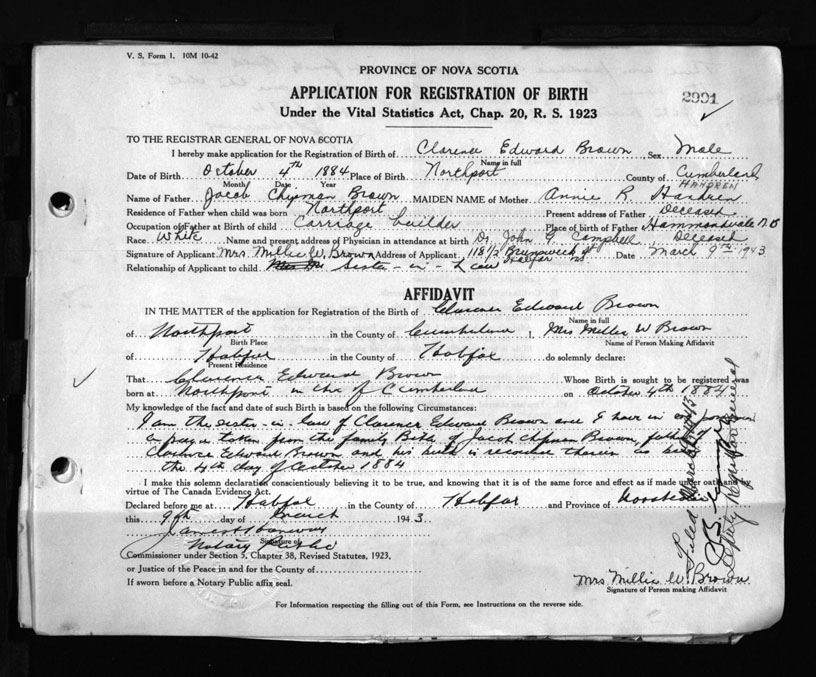 V. S. Form 1. 10M 10-42
PROVINCE OF NOVA SCOTIA
APPLICATION FOR REGISTRATION OF BIRTH
2991
Under the Vital Statistics Act, Chap. 20, R. S. 1923
TO THE REGISTRAR GENERAL OF NOVA SCOTIA
I hereby make application for the Registration of Birth of Clarence Edward Brown Sex Male
Name in full
Date of Birth October 4th 1884 Place of Birth Northport County of Cumberland
Month Date Year HANDREN
Name of Father Jacob Chipman Brown MAIDEN NAME of Mother Annie R
Residence of Father when child was born Northport Present address of Father Deceased
Occupation of Father at Birth of child Carriage builder Place of birth of Father Hammondvale N.B
Race White Name and present address of Physician in attendance at birth Dr. John G. Campbell, Deceased
Signature of Applicant Mrs. Millie W. Brown Address of Applicant 118 1/2 Brunswick St Halifax NS Date March 9th 1943
Relationship of Applicant to child Sister-in-Law
AFFIDAVIT
IN THE MATTER of the application for Registration of the Birth of Clarence Edward Brown
Name in full
of Northport in the County of Cumberland I, Mrs Millie W Brown
Birth Place Name of Person Making Affidavit
of Halifax in the County of Halifax do solemnly declare:
Present Residence
That Clarence Edward Brown Whose Birth is sought to be registered was
born at Northport in the of Cumberland on October 4th 1884
My knowledge of the fact and date of such Birth is based on the following Circumstances:
I am the sister-in-law of Clarence Edward Brown and I have in my possession
a page taken from the family Bible of Jacob Chipman Brown, father of
Clarence Edward Brown and his birth is recorded therein as being
the 4th day of October 1884
I make this solemn declaration conscientiously believing it to be true, and knowing that it is of the same force and effect as if made under oath and by
virtue of The Canada Evidence Act.
Declared before me at Halifax in the County of Halifax and Province of Nova Scotia
this 9th day of March 1943.
Signature of
Notary Public
Commissioner under Section 5, Chapter 38, Revised Statutes, 1923,
or Justice of the Peace in and for the County of
If sworn before a Notary Public affix seal.
Mrs. Millie W. Brown
Signature of Person making Affidavit
For Information respecting the filling out of this Form, see Instructions on the reverse side.
Filed March 1943
Deputy Registrar General